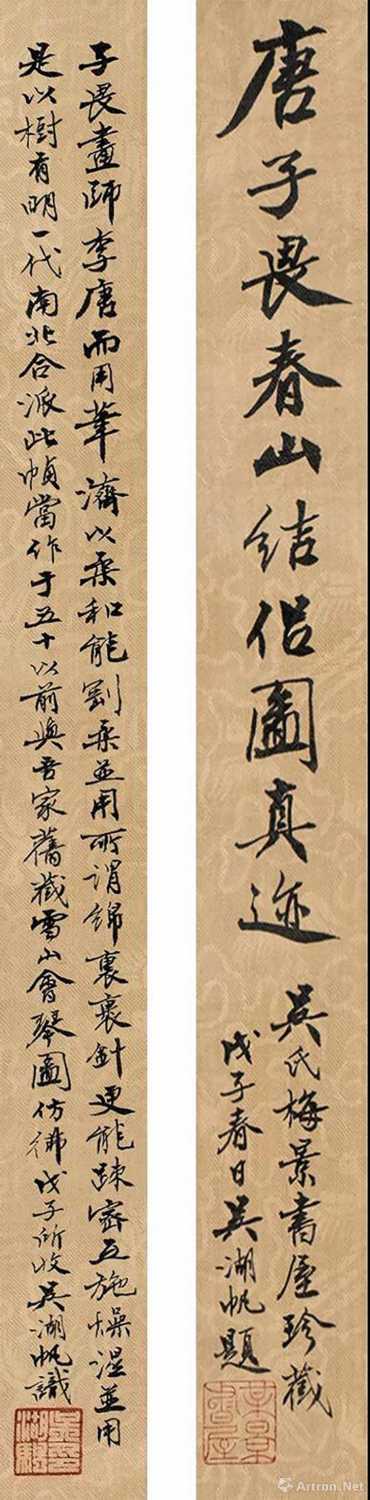 唐子畏春山结侣圖真迹
吴氏梅景書屋珍藏
戊子春日吴湖帆題
梅景書屋
子畏畫師李唐而用筆濟以柔和能剛柔並用所謂錦裹裹針更能疎密互施燥湿並用
是以樹有明一代南北合派此幀當作于五十以前與吾家舊藏雪山會琴圖仿彿戊子所收吴湖帆識
Artron.Net